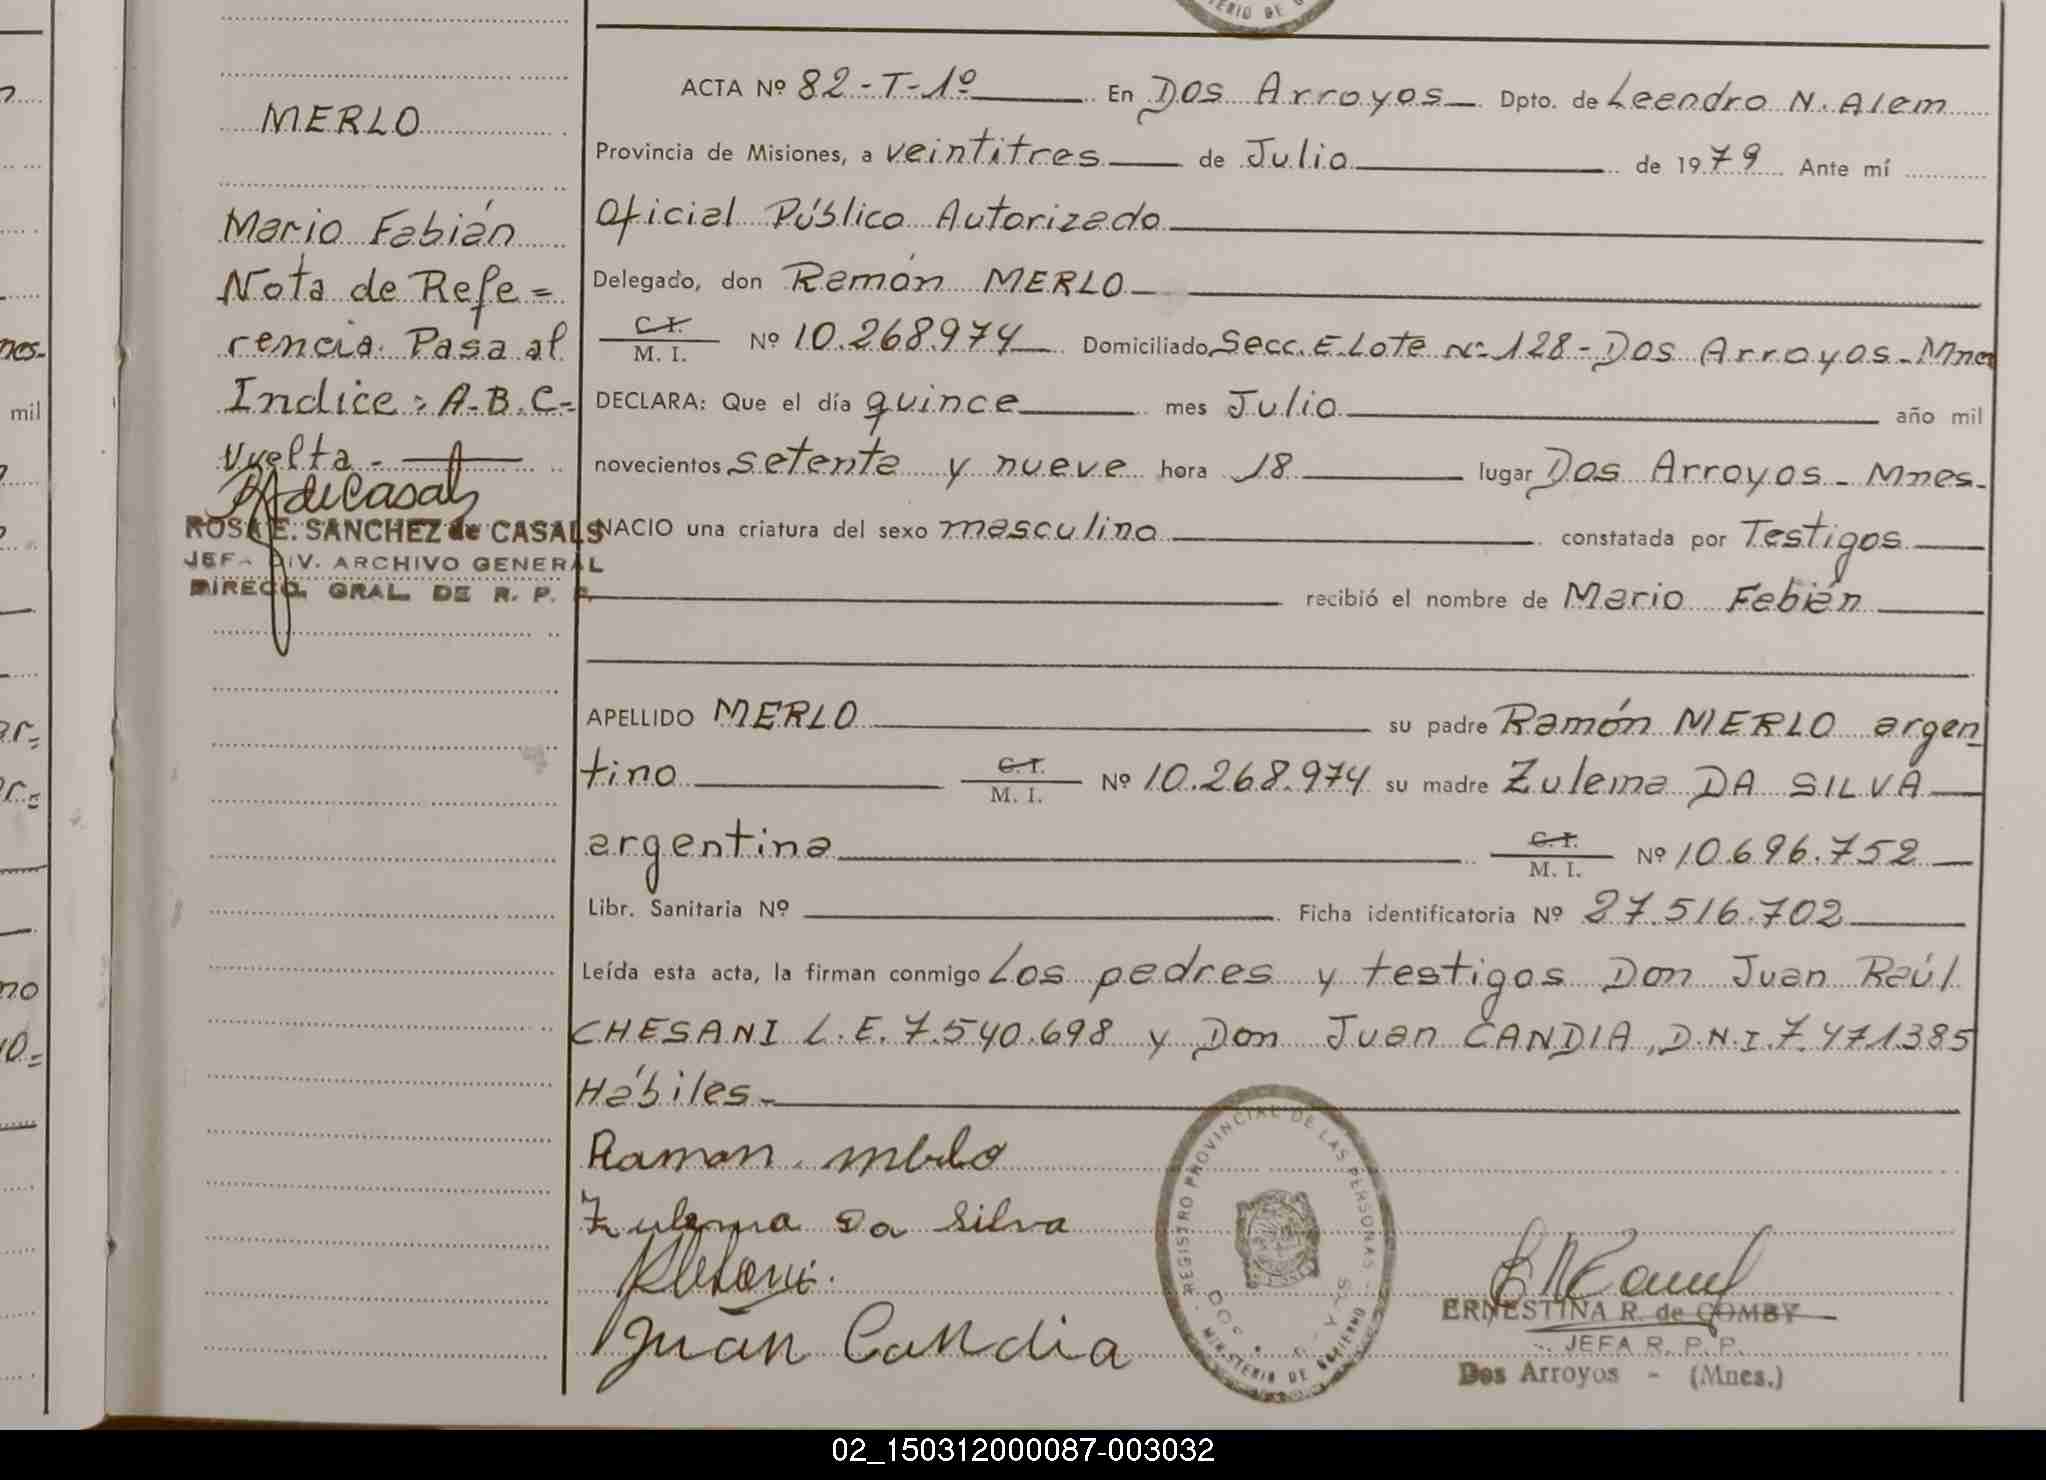 MERLO
Mario Fabián
Nota de Refe=
rencia. Pasa al
Indice: A-B.C-
Vuelta.-
ROSA E. SANCHEZ de CASALS
JEFA DIV. ARCHIVO GENERAL
DIRECC. GRAL. DE R. P. P.
ACTA Nº 82-T-1º En Dos Arroyos Dpto. de Leandro N. Alem
Provincia de Misiones, a veintitres de Julio de 1979 Ante mí
Oficial Público Autorizado
Delegado, don Ramón MERLO
C. I.
M. I. Nº 10.268.974 Domiciliado Secc. E. Lote Nº 128-Dos Arroyos-Mnes
DECLARA: Que el día quince mes Julio año mil
novecientos setenta y nueve hora 18 lugar Dos Arroyos-Mnes.
NACIO una criatura del sexo masculino constatada por Testigos
recibió el nombre de Mario Fabián
APELLIDO MERLO su padre Ramón MERLO argen
tino C. I. M. I. Nº 10.268.974 su madre Zulema DA SILVA
argentina C. I. M. I. Nº 10.696.752
Libr. Sanitaria Nº Ficha identificatoria Nº 27.516.702
Leída esta acta, la firman conmigo Los padres y testigos Don Juan Raúl
CHESANI L.E. 7.540.698 y Don Juan CANDIA, D.N.I. 7.471385
Hábiles-
Ramon merlo
Zulema Da Silva
Juan Candia
REGISTRO PROVINCIAL DE LAS PERSONAS
MINISTERIO DE GOBIERNO
ERNESTINA R. de COMBY
JEFA R. P. P.
Dos Arroyos - (Mnes.)
02_150312000087-003032